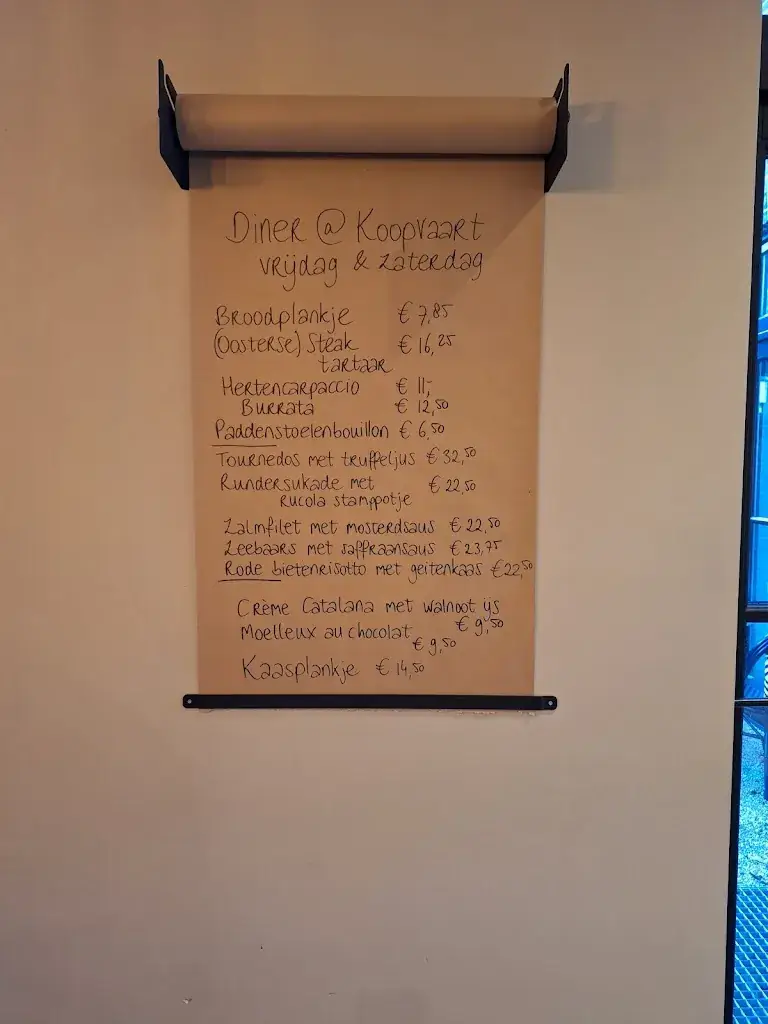 Diner @ Koopvaart
vrijdag & zaterdag
Broodplankje € 7,85
(Oosterse) Steak € 16,25
tartaar
Hertencarpaccio € 11,-
Burrata € 12,50
Paddenstoelenbouillon € 6,50
Tournedos met truffeljus € 32,50
Rundersukade met € 22,50
rucola stamppotje
Zalmfilet met mosterdsaus € 22,50
Zeebaars met saffraansaus € 23,75
Rode bietenrisotto met geitenkaas € 22,50
Crème Catalana met walnoot ijs
€ 9,50
Moelleux au chocolat
€ 9,50
Kaasplankje € 14,50